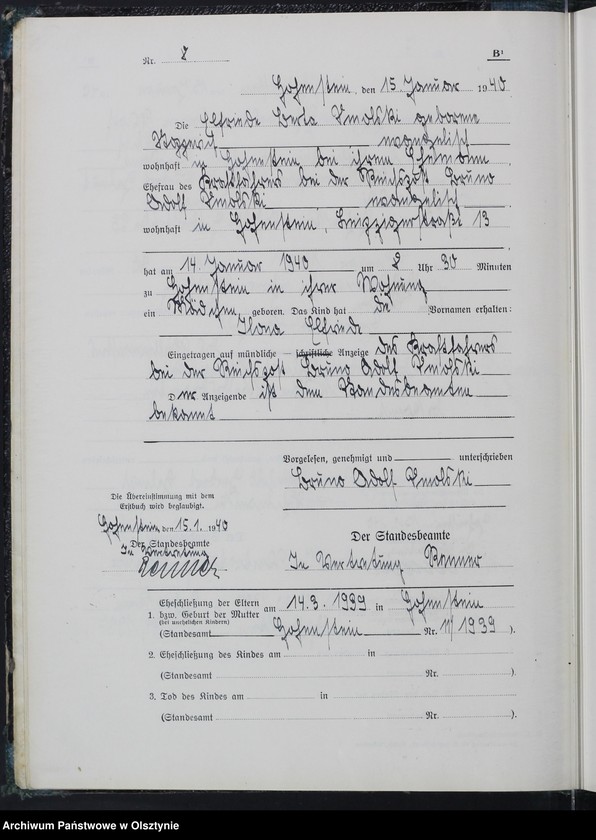 Nr. 7
B¹
Hohenstein, den 15. Januar 1940
Die Elfriede Berta Smolski geborene
evangelisch
wohnhaft in Hohenstein bei ihrem Ehemann
Ehefrau des Kraftfahrers bei der Reichspost Bruno
Adolf Smolski evangelisch
wohnhaft in Hohenstein, Leipzigerstraße 13
hat am 14. Januar 1940 um 2 Uhr 30 Minuten
zu Hohenstein in ihrer Wohnung
ein Mädchen geboren. Das Kind hat die Vornamen erhalten:
Ilona Elfriede
Eingetragen auf mündliche – schriftliche Anzeige des Kraftfahrers
bei der Reichspost Bruno Adolf Smolski
Der Anzeigende ist dem Standesbeamten
bekannt
Vorgelesen, genehmigt und unterschrieben
Bruno Adolf Smolski
Die Übereinstimmung mit dem
Erstbuch wird beglaubigt.
Hohenstein, den 15.1. 1940
Der Standesbeamte
In Vertretung
Der Standesbeamte
In Vertretung
Eheschließung der Eltern am 14.3.1939 in Hohenstein
1. bzw. Geburt der Mutter
(bei unehelichen Kindern)
(Standesamt Hohenstein Nr. 11/1939 ).
2. Eheschließung des Kindes am in
(Standesamt Nr. ).
3. Tod des Kindes am in
(Standesamt Nr. ).
Archiwum Państwowe w Olsztynie